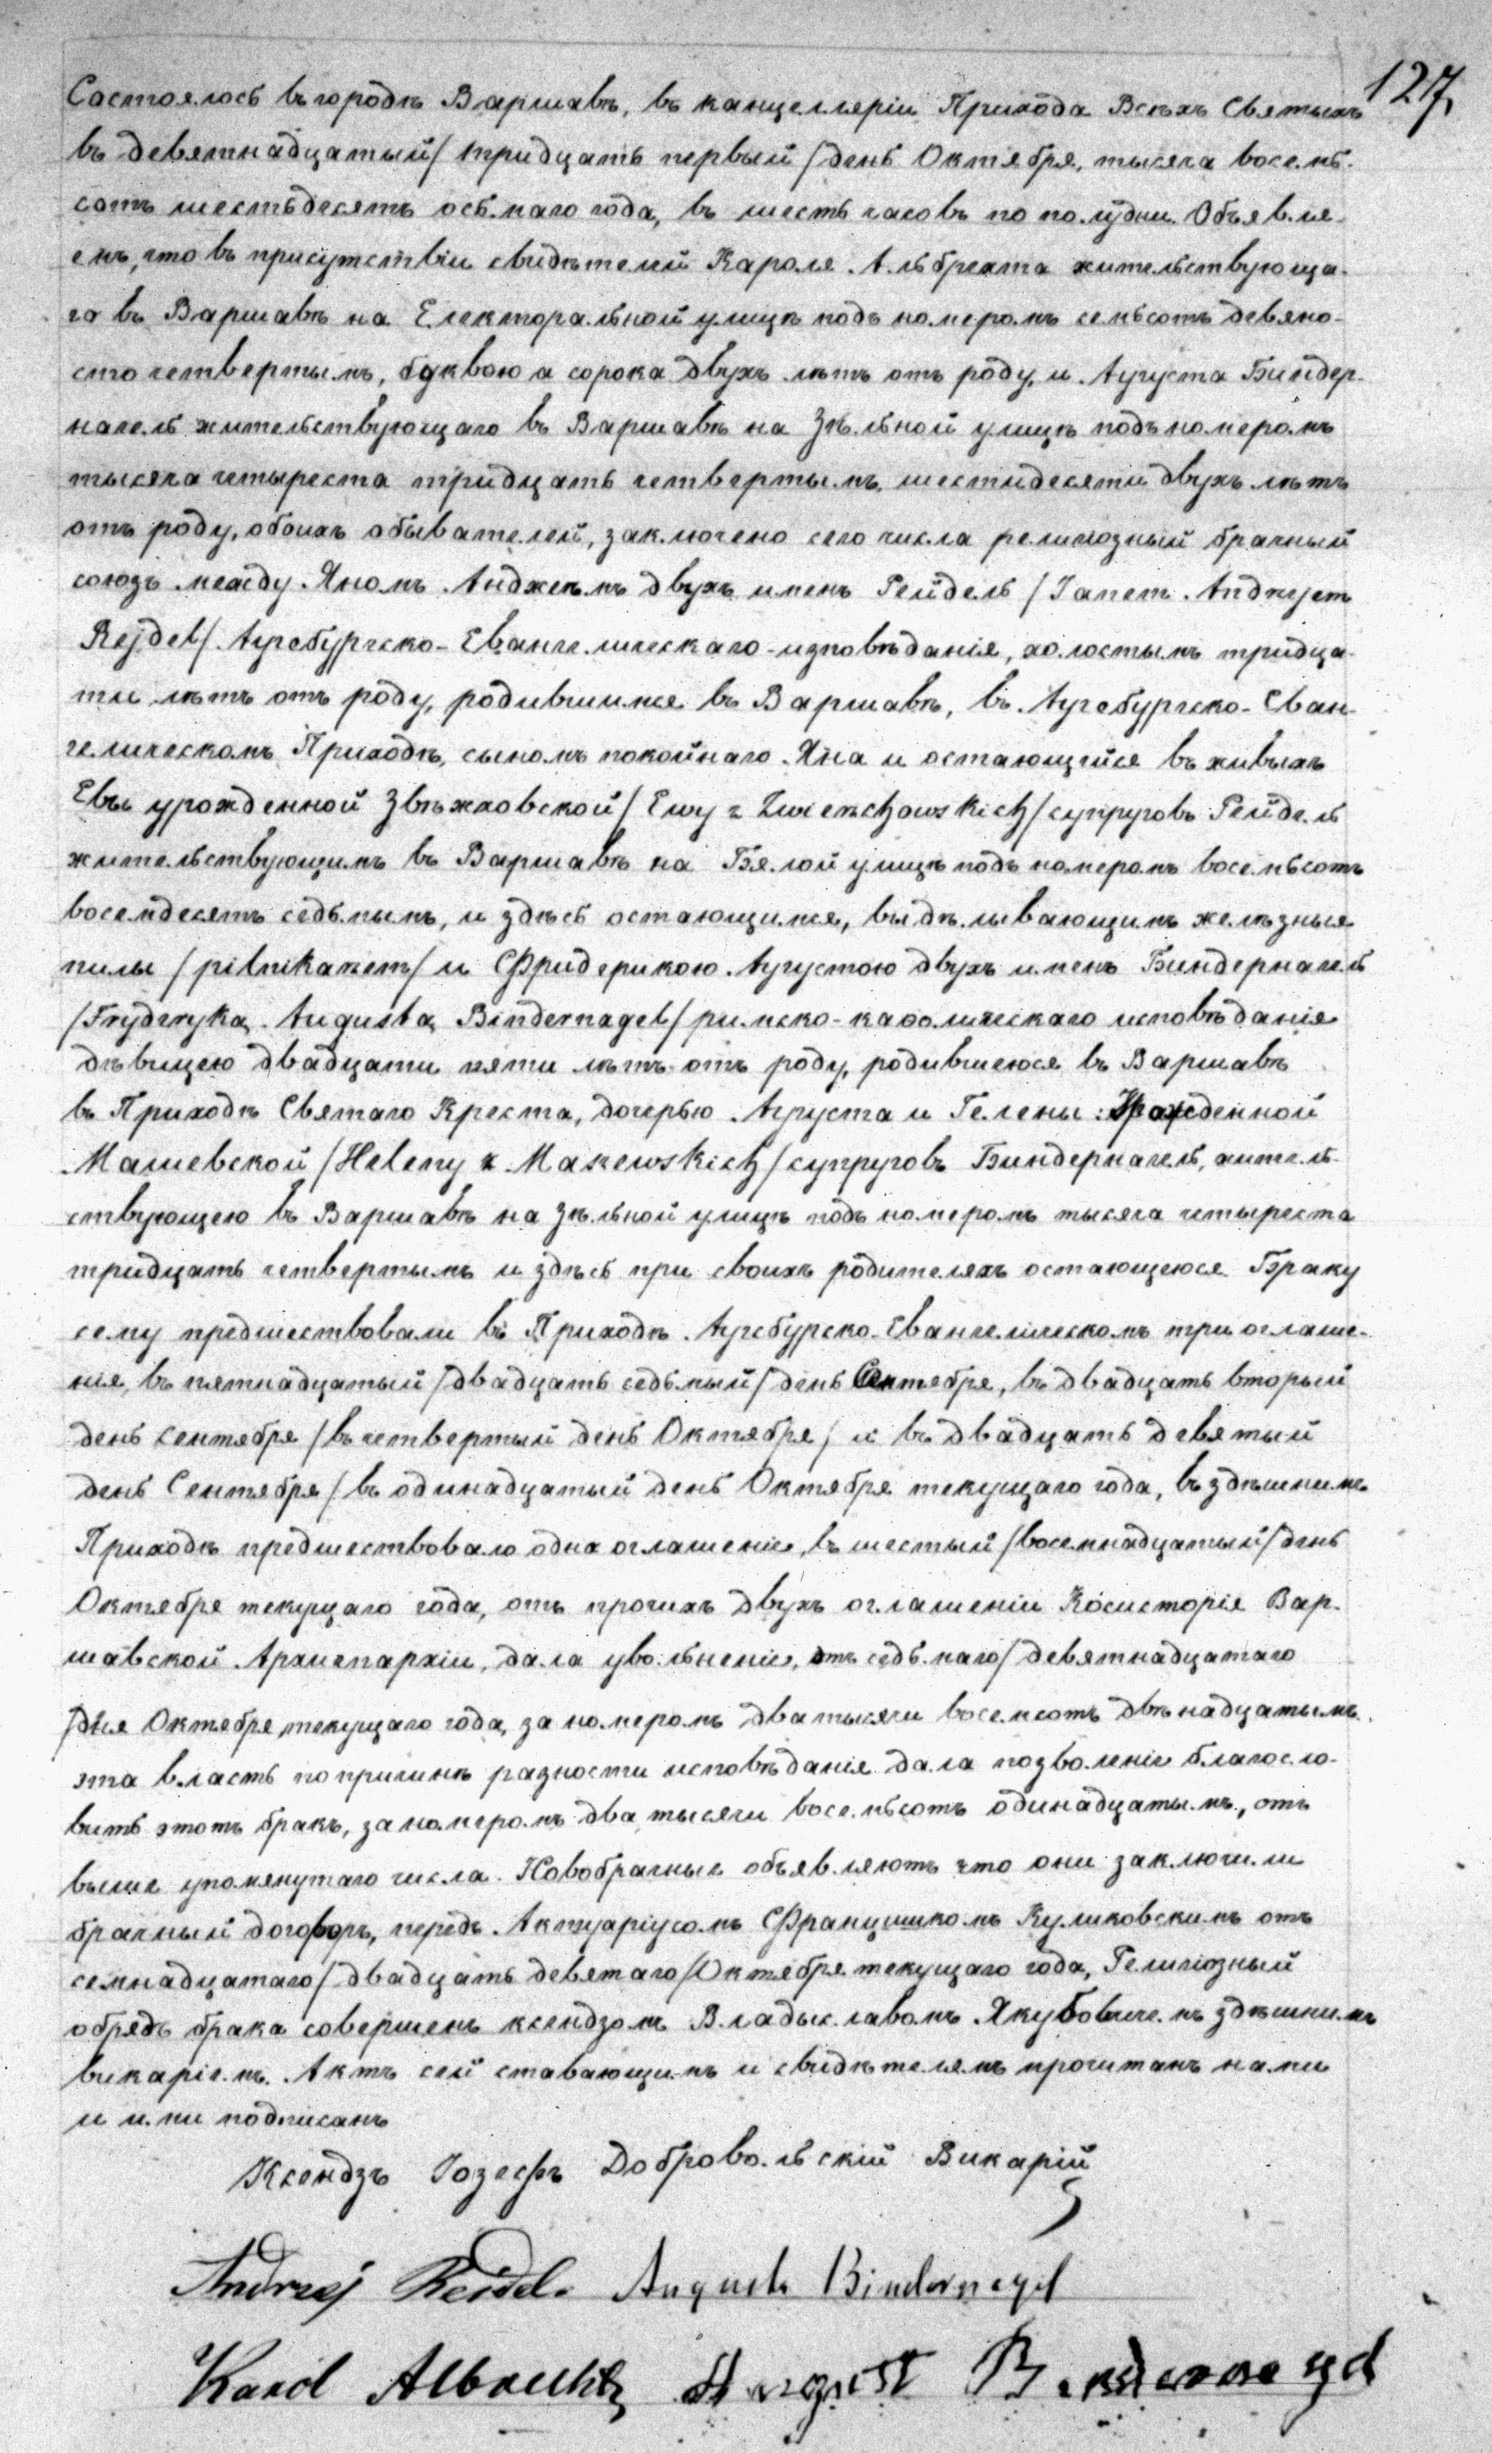 127
Состоялось въ городѣ Варшавѣ, въ канцелляріи Прихода Всѣхъ Святыхъ
въ девятнадцатый/тридцать первый/день Октября, тысяча восемь-
сотъ шестьдесятъ осьмаго года, въ шесть часовъ по полудни. Объявля-
емъ, что въ присутствіи свидѣтелей Кароля Альбрехта жительствующа-
го въ Варшавѣ на Електоральной улицѣ подъ номеромъ семьсотъ девяно-
сто четвертымъ, буквою а сорока двухъ лѣтъ отъ роду, и Августа Биндер-
нагель жительствующаго въ Варшавѣ на Зѣльной улицѣ подъ номеромъ
тысяча четыреста тридцать четвертымъ, шестидесяти двухъ лѣтъ
отъ роду, обоихъ обывателей, заключено сего числа религіозный брачный
союзъ между Яномъ Анджеемъ двухъ именъ Рейдель /Janem Andrzejem
Rejdel/ Аугсбургско-Евангелическаго-изповѣданія, холостымъ тридца-
ти лѣтъ отъ роду, родившимся въ Варшавѣ, въ Аугсбургско-Еван-
гелическомъ Приходѣ, сыномъ покойнаго Яна и остающейся въ живыхъ
Евы урожденной Звѣжховской/Ewy z Zwierzchowskich/супруговъ Рейдель
жительствующимъ въ Варшавѣ на Бялой улицѣ подъ номеромъ восемьсотъ
восемдесятъ седьмымъ, и здѣсь остающимся, выдѣлывающимъ желѣзныя
пилы /pilnikarzem/ и Фридерикою Августою двухъ именъ Биндернагель
/Fryderyką Augustą Bindernagel/ римско-каѳолическаго исповѣданія
дѣвицею двадцати пяти лѣтъ отъ роду, родившеюся въ Варшавѣ
въ Приходѣ Святаго Креста, дочерью Августа и Гелены Урожденной
Машевской /Heleny z Maszewskich/супруговъ Биндернагель, житель-
ствующею въ Варшавѣ на Зѣльной улицѣ подъ номеромъ тысяча четыреста
тридцать четвертымъ и здѣсь при своихъ родителяхъ остающеюся. Браку
сему предшествовали въ Приходѣ Аугсбурско-Евангелическомъ три оглаше-
нія, въ пятнадцатый/двадцать седьмый/день Сентября, въ двадцать вторый
день Сентября/въ четвертый день Октября/ и въ двадцать девятый
день Сентября/въ одинадцатый день Октября текущаго года, въ здѣшнимъ
Приходѣ предшествовало одна оглашеніе, въ шестый/восемнадцатый/день
Октября текущаго года, отъ прочихъ двухъ оглашеніи Косисторія Вар-
шавской Архіепархіи, дала увольненіе, отъ седьмаго/девятнадцатаго
/дня Октября текущаго года, за номеромъ два тысячи восемсотъ двѣнадцатымъ.
эта власть по причинѣ разности исповѣданія дала позволеніе благосло-
вить этотъ бракъ, за номеромъ два тысячи восемьсотъ одинадцатымъ, отъ
выше упомянутаго числа. Новобрачные объявляютъ что они заключили
брачный договоръ, передъ Актуаріусомъ Францишкомъ Куликовскимъ отъ
семнадцатаго/двадцать девятаго/Октября текущаго года, Религіозный
обрядъ брака совершенъ ксендзомъ Владыславомъ Якубовичемъ здѣшнимъ
викаріемъ. Актъ сей ставающимъ и свидѣтелямъ прочитанъ нами
и ими подписанъ
Ксендзъ Іозефъ Добровольскій Викарій
Andrzej Reidel. Augusta Bindernagel
Karol Albrecht August Bindernagel